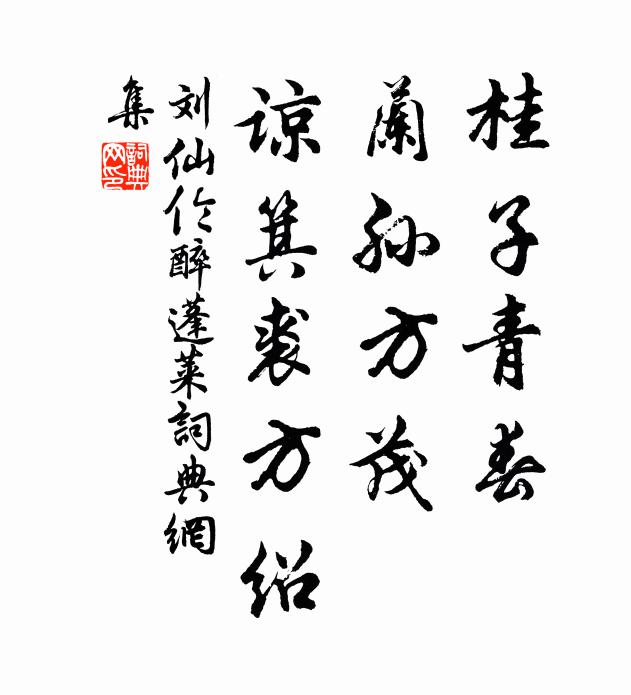 桂子青春
蘭孙方茂
谅箕裘方绍
刘仙伦醉蓬莱詞典網
集
詞典网印